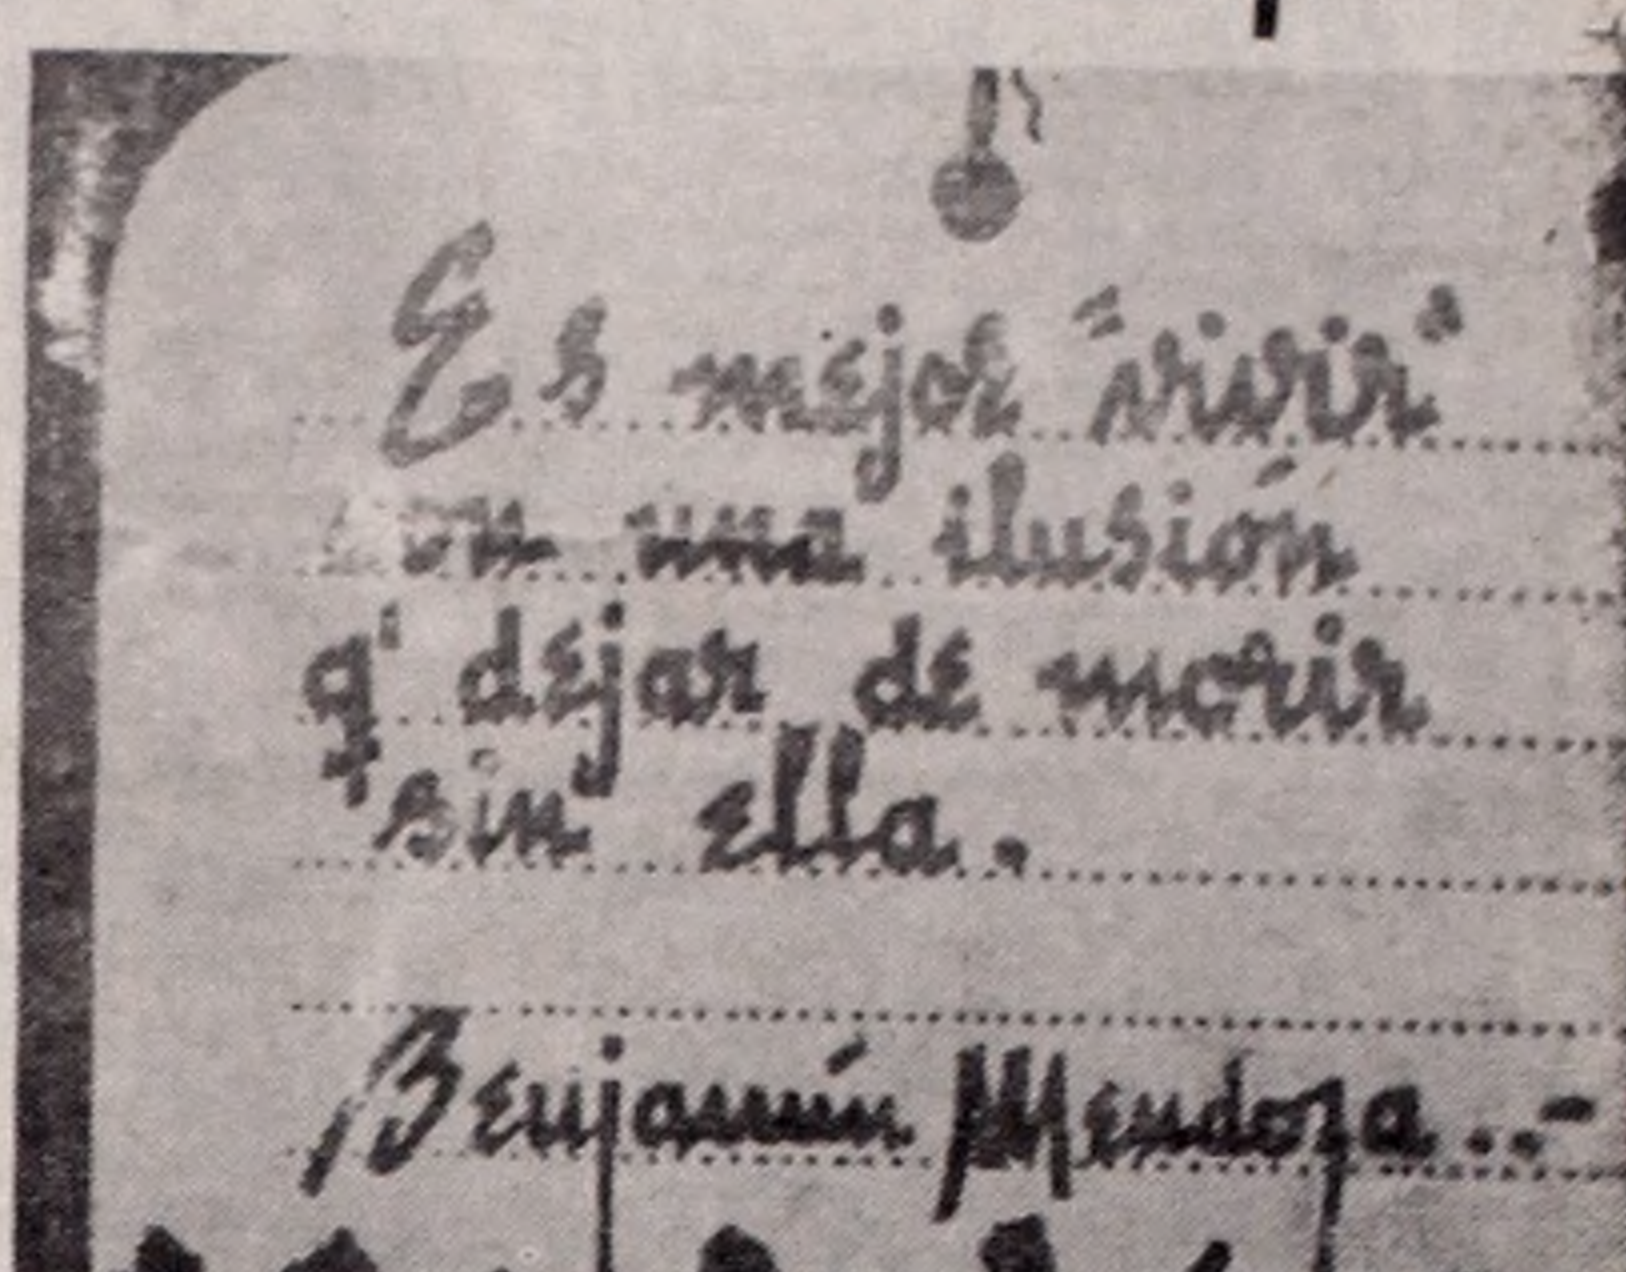 Es mejor "vivir"
con una ilusión
q' dejar de morir
sin ella.
Benjamín Mendoza..-